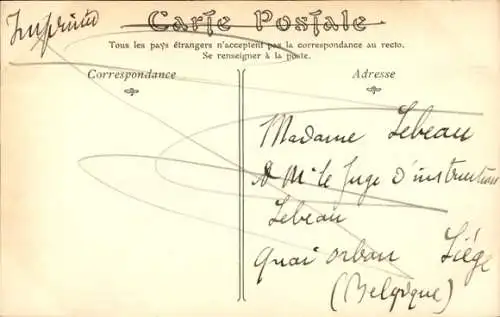 Imprimé
Carte Postale
Tous les pays étrangers n'acceptent pas la correspondance au recto.
Se renseigner à la poste.
Correspondance
Adresse
Madame Lebeau
& Mr le Juge d'instruction
Lebeau
Quai orban Liége
(Belgique)